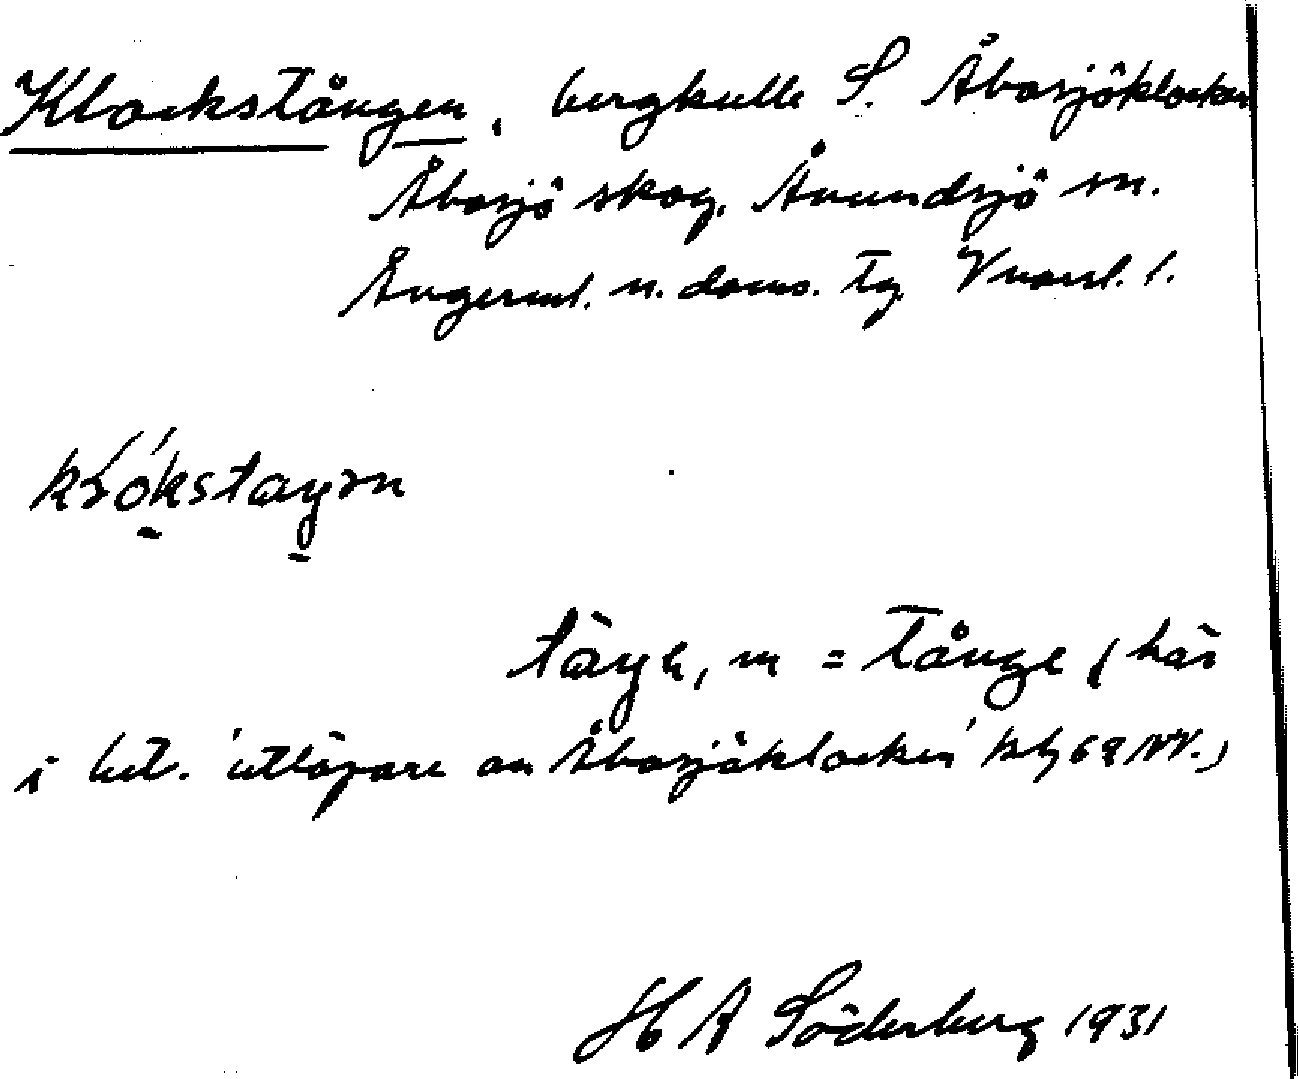 Klockstången, bergkulle S. Åbosjöklocken
Åbosjö skog, Ånundsjö sn.
Ångerml. n. doms. tg. Vnorrl. l.
tåŋk, m = Tånge (här
i bet. 'utlöpare av Åbosjöklocken'
H A Söderberg 1931